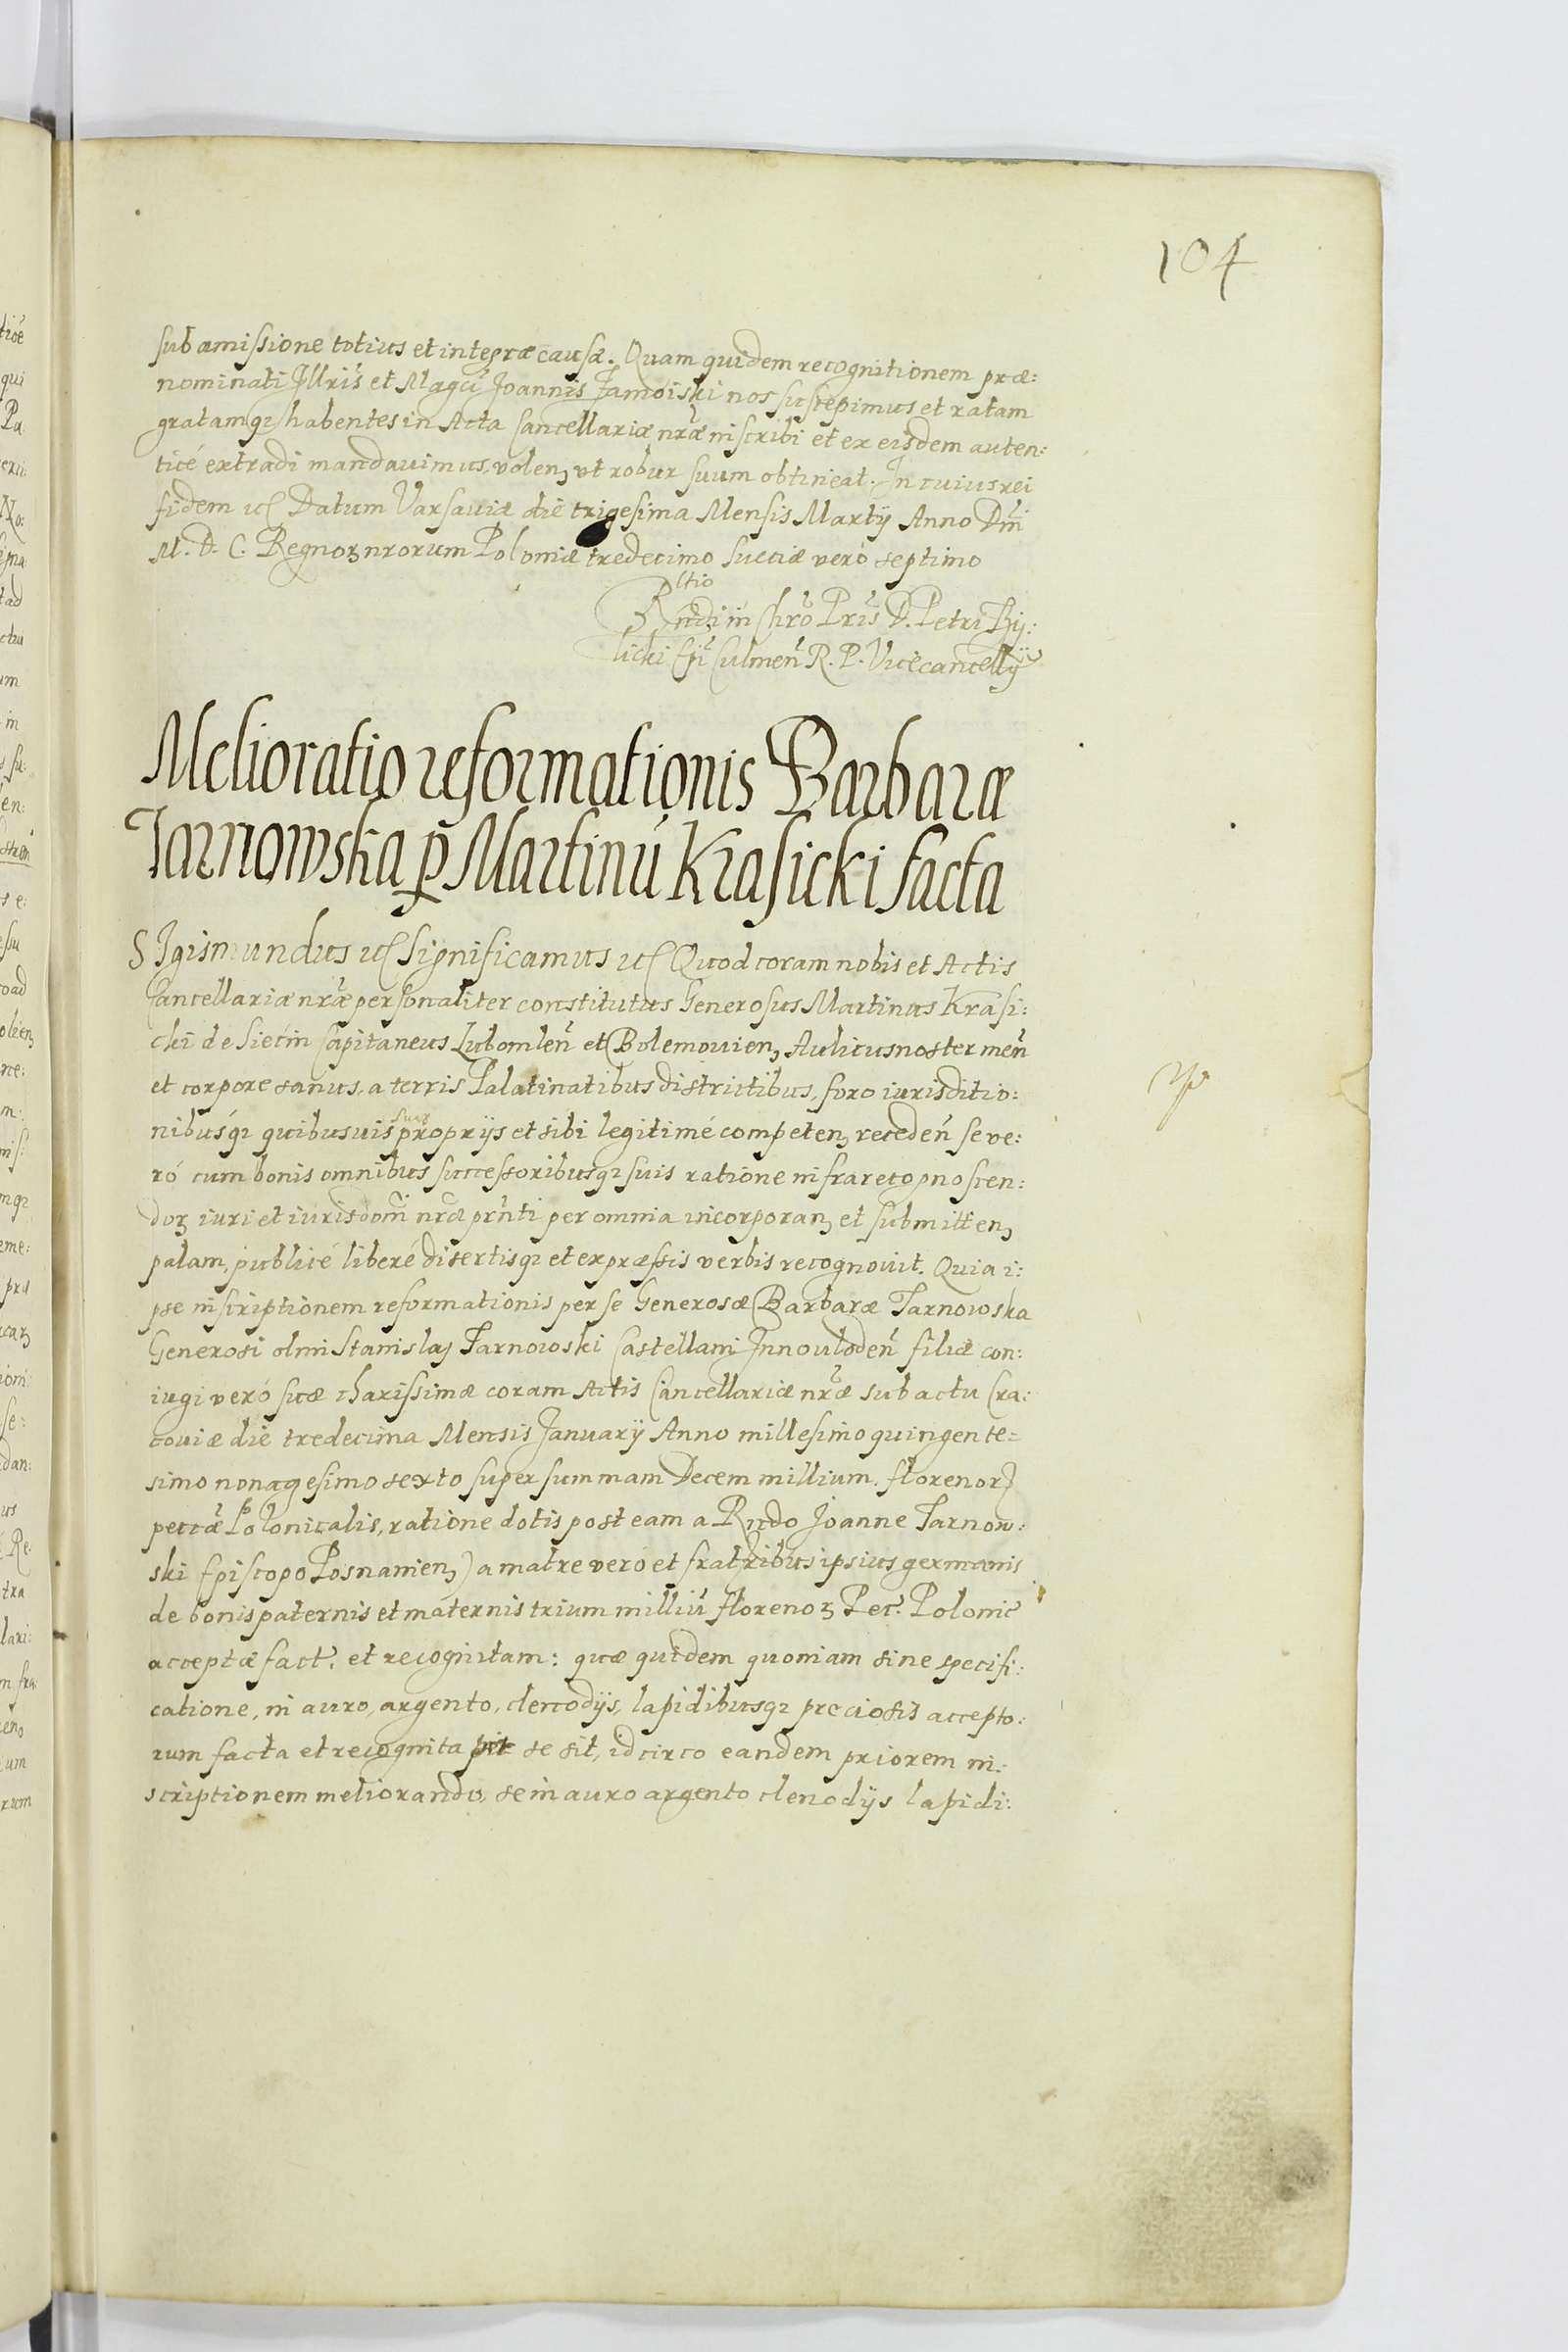 104
sub amissione totius et integræ causæ. Quam quidem recognitionem præ:
nominati Illris et Magci Joannis Zamoiski nos suscepimus et ratam
gratamq₃ habentes in Acta Cancellariæ nræ inscribi et ex eisdem auten:
ticé extradi mandauimus, volen₃ vt robur suum obtineat. In cuius rei
fidem etc Datum Varsauiæ die trigesima Mensis Martij Anno Dni
M. D. C. Regnoꝝ nrorum Poloniæ tredecimo Sueciæ veró septimo
Rltio
Rndi in Chro Pris D. Petri Tÿ:
licki Epi Culmen R. P. Vicecancellÿ
Melioratio reformationis Barbaræ
Tarnowska ꝑ Martinú Krasicki facta
SIgismundus etc Significamus etc Quod coram nobis et Actis
Cancellariæ nræ personaliter constitutus Generosus Martinus Krasi:
cki de Siecin Capitaneus Lubomlen et Bolemouien₃ Aulicus noster men
et corpore sanus, a terris Palatinatibus districtibus, foro iurisditio:
nibúsq₃ quibusuis suis proprijs et sibi legitimé competen₃ receden se ve:
ró cum bonis omnibus successoribusq₃ suis ratione infrarecognoscen:
doꝝ iuri et iurisdoni nræ prnti per omnia incorporan₃ et submitten₃
palam, publicé liberé disertisq₃ et expræssis verbis recognouit. Quia i:
pse inscriptionem reformationis per se Generosæ Barbaræ Tarnowska
Generosi olmi Stanislaj Tarnowski Castellani Innoulden filiæ con:
iugi veró suæ charissimæ coram Actis Cancellariæ nræ sub actu Cra:
couiæ die tredecima Mensis Januarÿ Anno millesimo quingente=
simo nonagesimo sexto super summam Decem millium. florenoꝝ
peccæ Polonicalis, ratione dotis post eam a Rndo Joanne Tarnow:
ski Episcopo Posnanien₃) a matre veró et fratribus ipsius germanis
de bonis paternis et maternis trium milliú florenoꝝ Pec. Polonic
acceptæ fact. et recognitam: quæ quidem quoniam sine specifi:
catione, in auro, argento, clenodÿs, lapidibusq₃ preciosis accepto:
rum facta et recognita se sit, idcirco eandem priorem in:
scriptionem meliorando, se in auro argento clenodÿs lapidi: